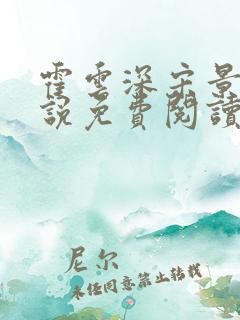 霍雲深宋景
說免費閱讀
尼尔
未经同意禁止转载